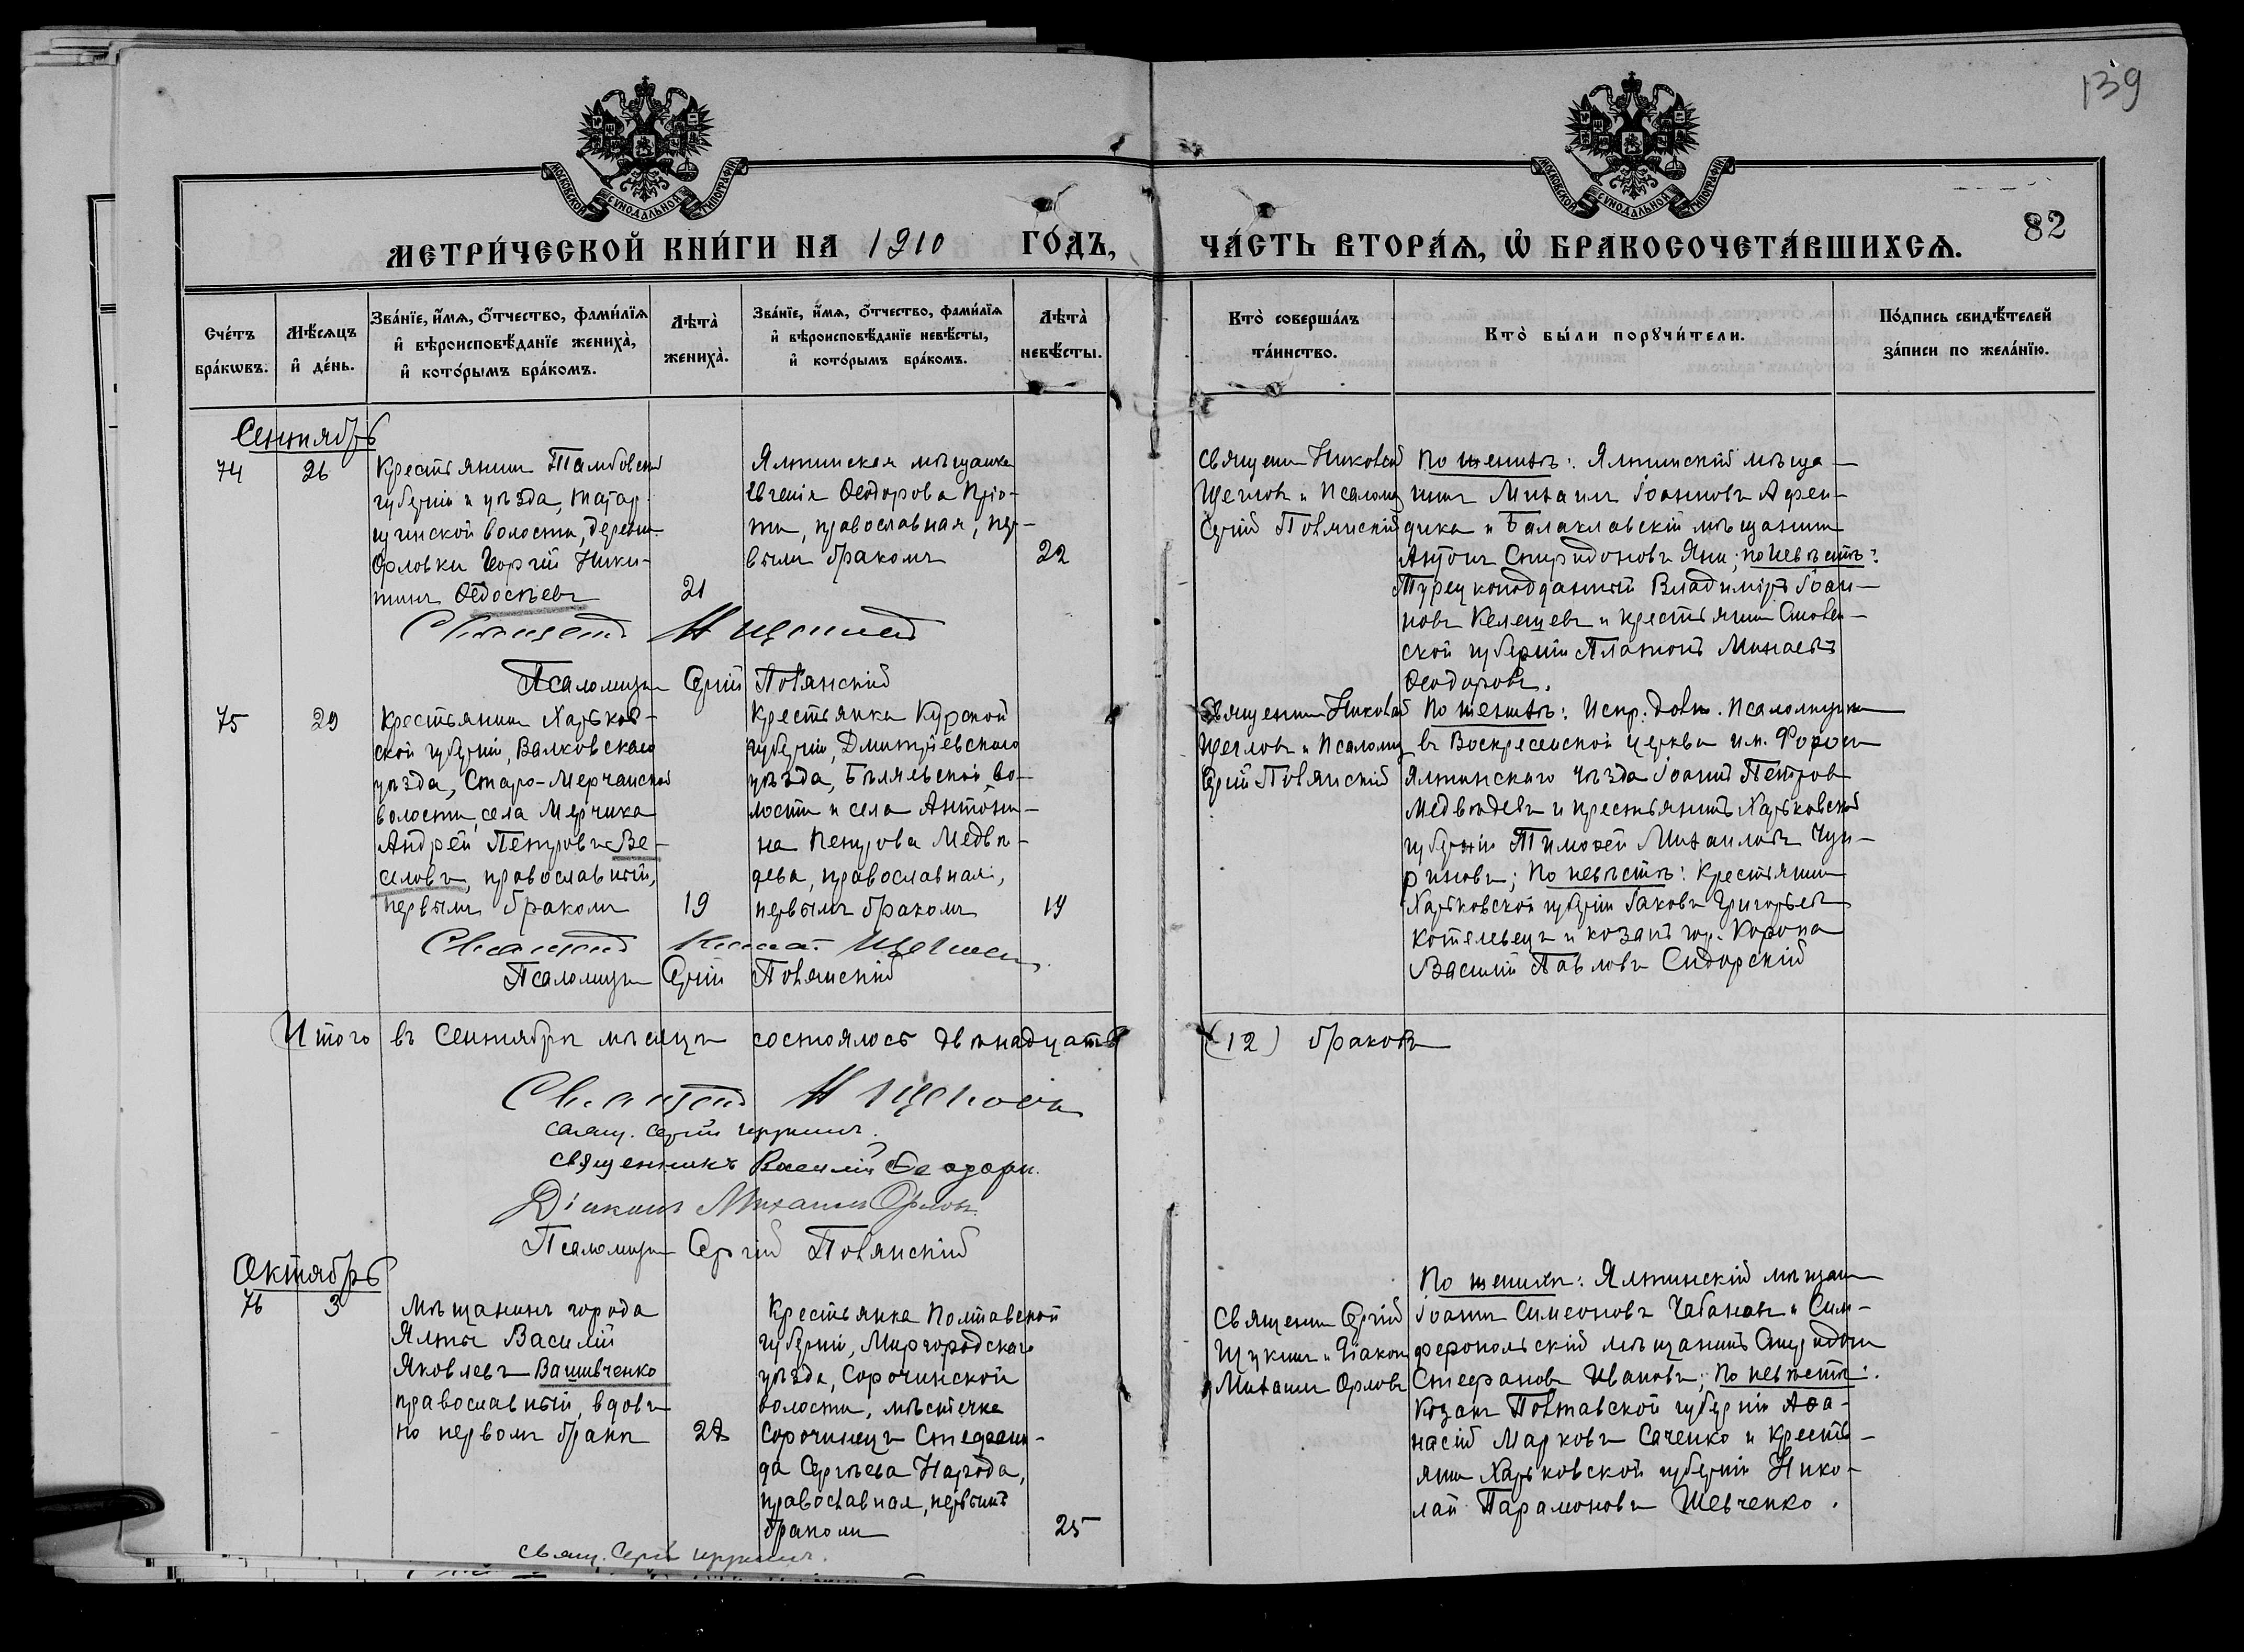 139
МОСКОВСКОЙ СѴНОДАЛЬНОЙ ТИПОГРАФІИ
МОСКОВСКОЙ СѴНОДАЛЬНОЙ ТИПОГРАФІИ
МЕТРИ́ЧЕСКОЙ КНИ́ГИ НА 1910 ГО́ДЪ,
ЧА́СТЬ ВТОРА́Ѧ, Ѡ҆ БРАКОСОЧЕТА́ВШИХСѦ.
82
Сче́тъ бра́кѡвъ.
Мѣ́сѧцъ и҆ де́нь.
Зва́нїе, и҆́мѧ, ѻ҆́тчество, фами́лїѧ
и҆ вѣроисповѣ́данїе жениха̀,
и҆ кото́рымъ бра́комъ.
Лѣта̀ жениха̀.
Зва́нїе, и҆́мѧ, ѻ҆́тчество, фами́лїѧ
и҆ вѣроисповѣ́данїе невѣ́сты,
и҆ кото́рымъ бра́комъ.
Лѣта̀ невѣ́сты.
Кто̀ соверша́лъ
та́инство.
Кто̀ бы́ли порꙋчи́тели.
По́дпись свидѣ́телей
за́писи по жела́нїю.
Сентябрь
74
26
Крестьянинъ Тамбовской
губерніи и уѣзда, Татар
щинской волости, деревни
Орловки Георгій Ники-
тинъ Ѳедосѣевъ
21
Ялтинская мѣщанка
Евгенія Ѳеодорова
православная, пер-
вымъ бракомъ
22
Священ. Николай
Щегловъ и Псаломщ.
Сергій Полянскій
По женихѣ: Ялтинскій мѣща-
нинъ Михаилъ Іоанновъ Афен-
дика и Балаклавскій мѣщанинъ
Антонъ Спиридоновъ Яни; по невѣстѣ:
Турецкоподданный Владиміръ Іоан-
новъ Келешевъ и крестьянинъ
ской губерніи Платонъ Минаевъ
Ѳеодоровъ.
Священникъ Н Щегловъ
Псаломщикъ Сергій Полянскій
75
29
Крестьянинъ Харьков-
ской губерніи, Валковскаго
уѣзда, Старо-Мерчанской
волости, села Мерчика
Андрей Петровъ Ве-
селовъ, православный,
первымъ бракомъ
19
Крестьянка Курской
губерніи, Дмитріевскаго
уѣзда, Бѣляевской во-
лости и села Антони-
на Петрова Медвѣ-
дева, православная,
первымъ бракомъ
19
Священникъ Николай
Щегловъ и Псаломщ.
Сергій Полянскій
По женихѣ: Испр. долж. Псаломщика
въ Воскресенской церкви им. Форосъ
Ялтинскаго уѣзда Іоаннъ Петровъ
Медвѣдевъ и крестьянинъ Харьковской
губерніи Тимоѳей Михаиловъ Чуп-
риновъ; По невѣстѣ: Крестьянинъ
Харьковской губерніи Іаковъ Григорьевъ
Котелевецъ и козакъ гор. Коропа
Василій Павловъ Сидорскій
Священникъ Никол. Щегловъ
Псаломщикъ Сергій Полянскій
Итого въ Сентябрѣ мѣсяцѣ состоялось двѣнадцать (12) браковъ
Священникъ Н Щегловъ
Свящ. Сергій Щукинъ.
Священникъ Василій
Діаконъ Михаилъ Орловъ.
Псаломщикъ Сергій Полянскій
Октябрь
76
3
Мѣщанинъ города
Ялты Василій
Яковлевъ Вашивченко
православный, вдовъ
по первомъ бракѣ
Крестьянка Полтавской
губерніи, Миргородскаго
уѣзда, Сорочинской
волости, мѣстечка
Сорочинецъ
да Сергѣева Нагода,
православная, первымъ
бракомъ
25
Священ. Сергій
Щукинъ и Діаконъ
Михаилъ Орловъ
По женихѣ: Ялтинскій мѣщан.
Іоаннъ Симеоновъ Чабановъ и Сим-
феропольскій мѣщанинъ Спиридонъ
Стефановъ Ивановъ; По невѣстѣ:
Козакъ Полтавской губерніи Аѳа-
насій Марковъ Саченко и Кресть-
янинъ Харьковской губерніи Нико-
лай Парамоновъ Шевченко.
Свящ. Сергій Щукинъ.